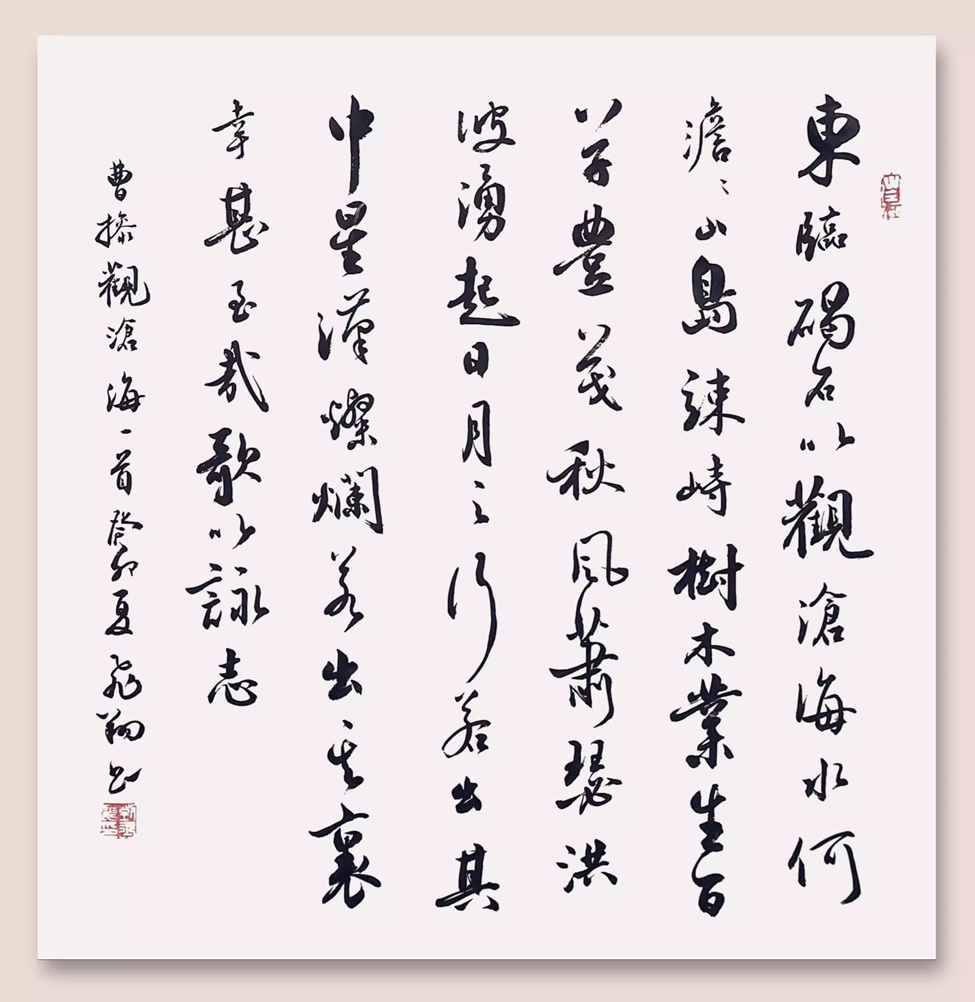 東臨碣石以觀滄海水何
澹〻山島竦峙樹木業生百
草豐茂秋風蕭瑟洪
波湧起日月之行若出其
中星漢燦爛若出其裏
幸甚至哉歌以詠志
曹操觀滄海一首癸卯夏飛翔書